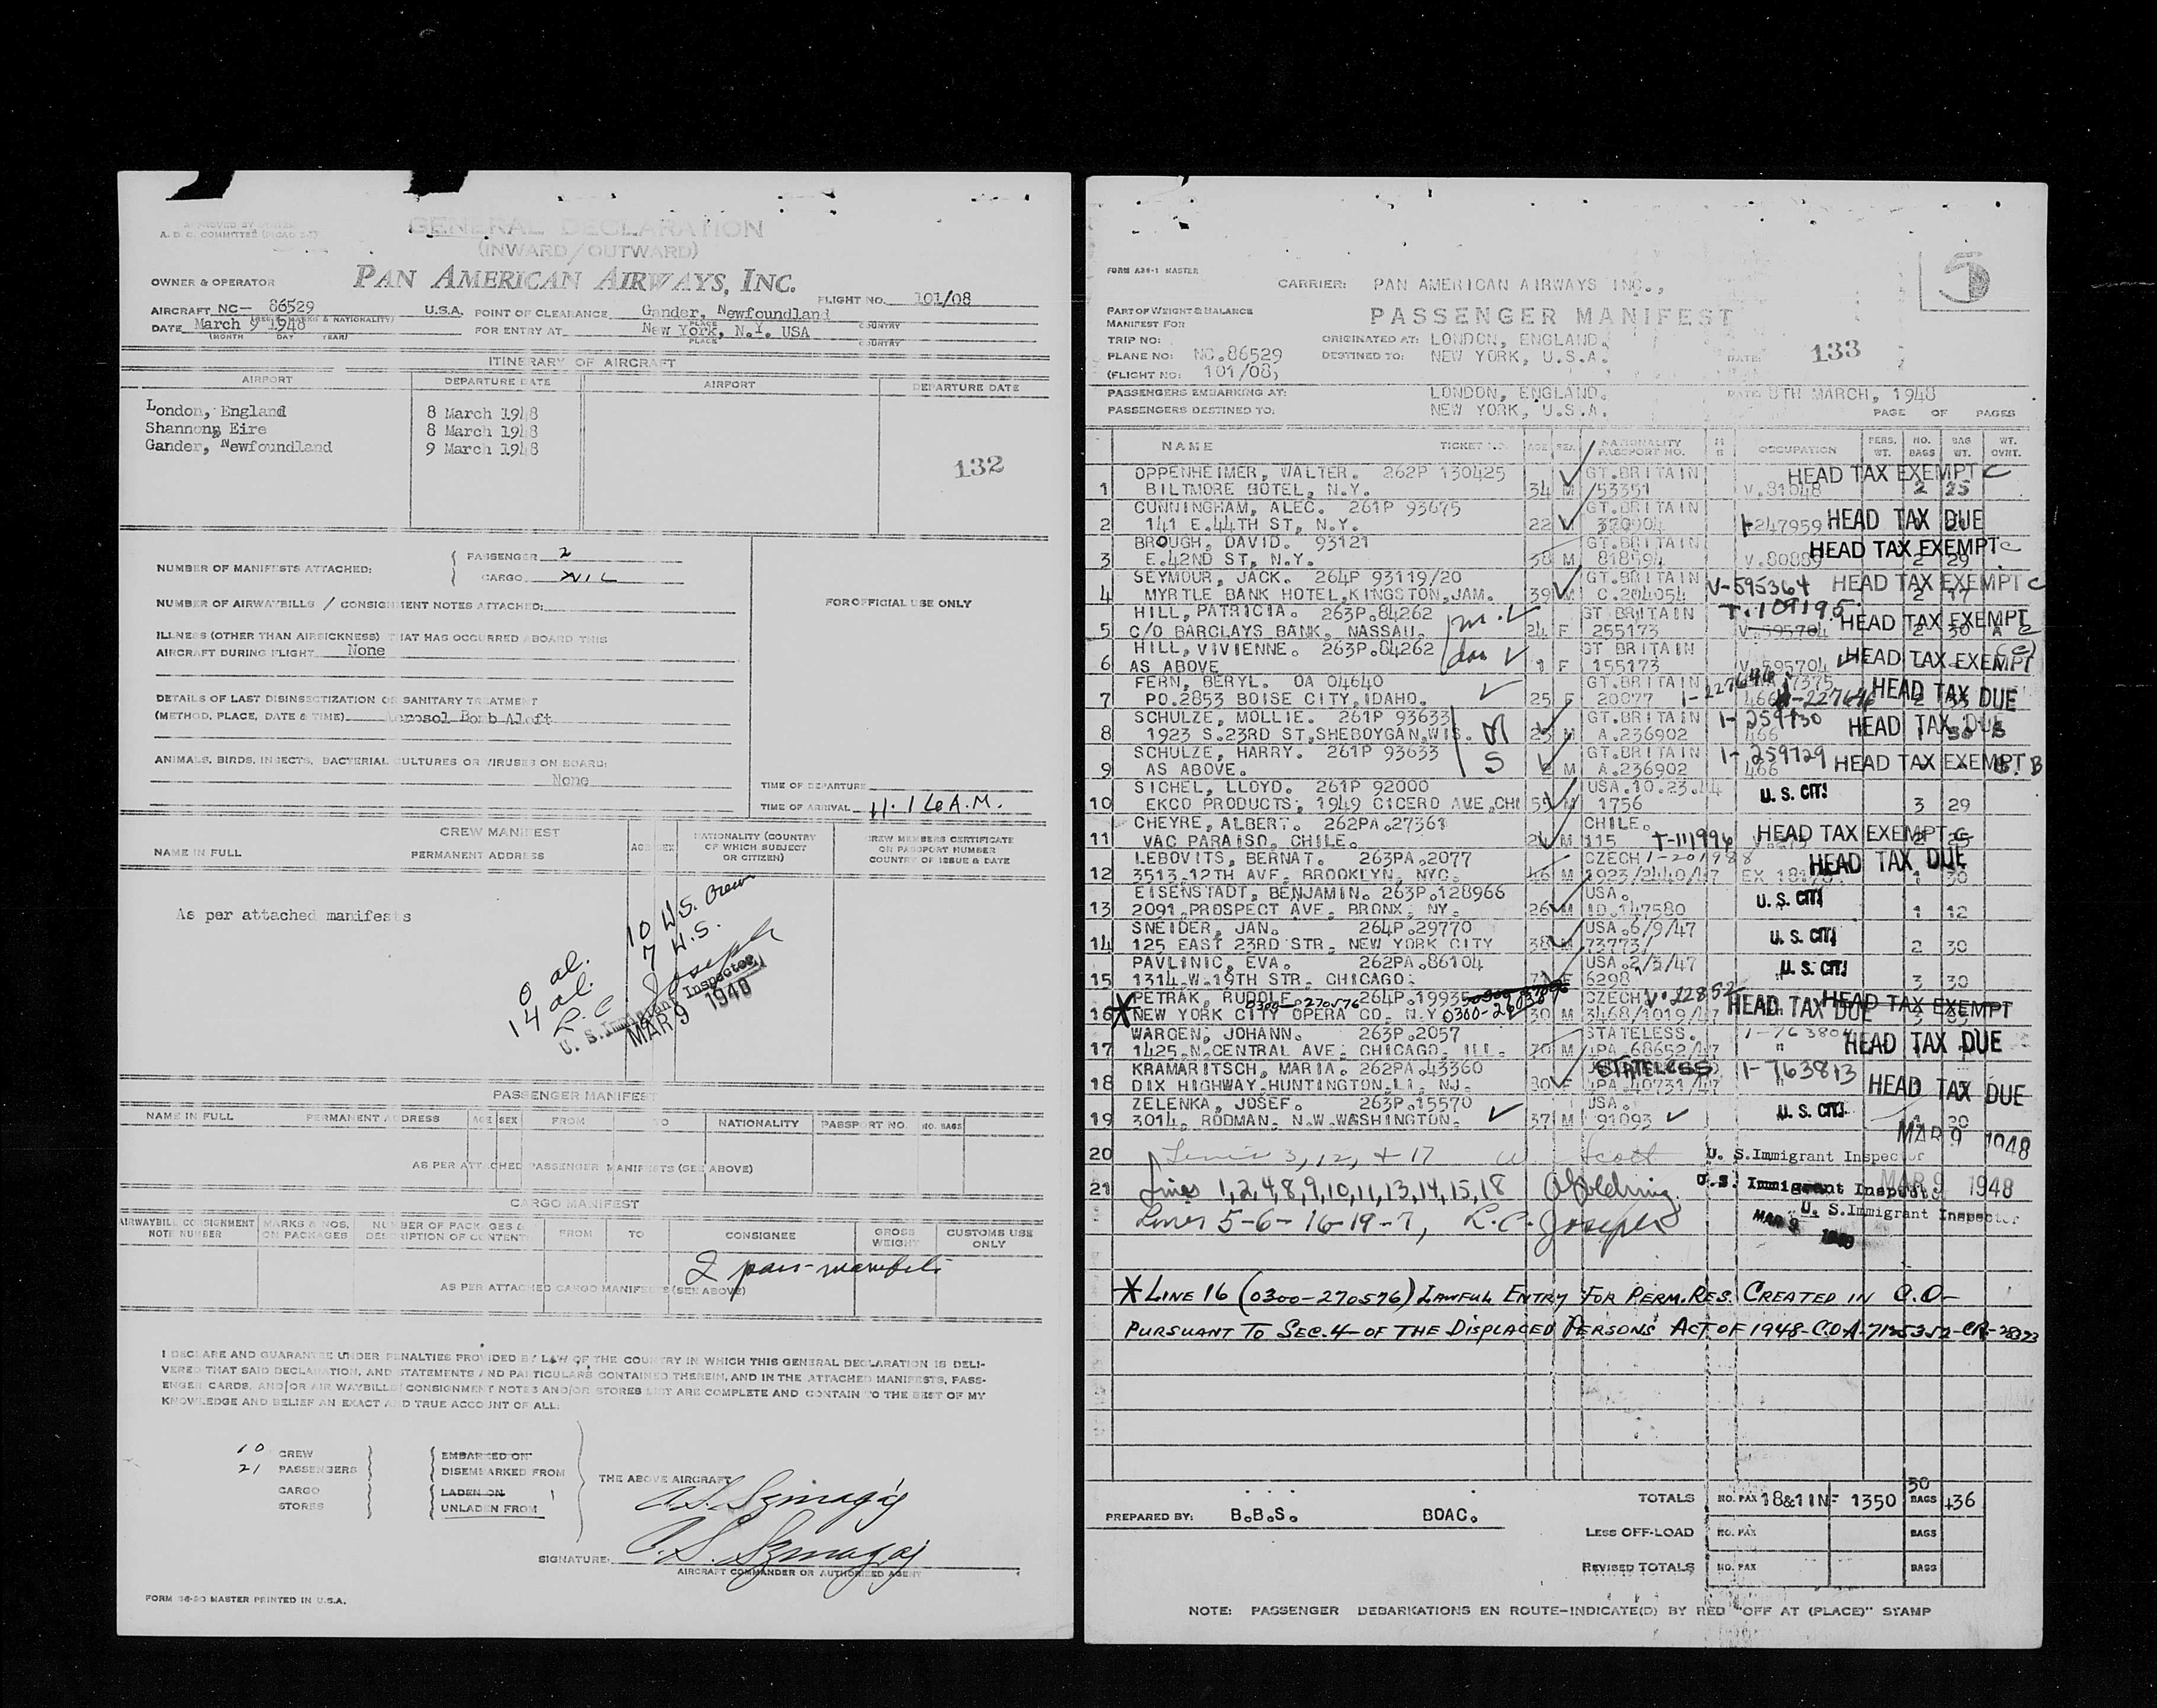 APPROVED BY
A. D. C. COMMITTEE
GENERAL DECLARATION
(INWARD/OUTWARD)
OWNER & OPERATOR PAN AMERICAN AIRWAYS, INC.
FLIGHT NO. 101/08
AIRCRAFT NC- 86529 U.S.A. POINT OF CLEARANCE Gander, Newfoundland
DATE March 9 1948 FOR ENTRY AT New York, N.Y. USA
(MONTH DAY YEAR) PLACE COUNTRY
ITINERARY OF AIRCRAFT
AIRPORT DEPARTURE DATE AIRPORT DEPARTURE DATE
London, England 8 March 1948
Shannon, Eire 8 March 1948
Gander, Newfoundland 9 March 1948
132
NUMBER OF MANIFESTS ATTACHED: PASSENGER 2
CARGO NIL
NUMBER OF AIRWAYBILLS / CONSIGNMENT NOTES ATTACHED:
FOR OFFICIAL USE ONLY
ILLNESS (OTHER THAN AIRSICKNESS) THAT HAS OCCURRED ABOARD THIS
AIRCRAFT DURING FLIGHT None
DETAILS OF LAST DISINSECTIZATION OR SANITARY TREATMENT
(METHOD, PLACE, DATE & TIME) Aerosol Bomb Aloft
ANIMALS, BIRDS, INSECTS, BACTERIAL CULTURES OR VIRUSES ON BOARD:
None
TIME OF DEPARTURE
TIME OF ARRIVAL 11.16 A.M.
CREW MANIFEST
NAME IN FULL PERMANENT ADDRESS AGE SEX NATIONALITY (COUNTRY OF WHICH SUBJECT OR CITIZEN) CREW MEMBERS CERTIFICATE OR PASSPORT NUMBER COUNTRY OF ISSUE & DATE
As per attached manifests
10 U.S. Crew
7 U.S.
0 al.
14 al.
L.C. Joseph
U. S. Immigrant Inspector
MAR 9 1948
PASSENGER MANIFEST
NAME IN FULL PERMANENT ADDRESS AGE SEX FROM TO NATIONALITY PASSPORT NO. NO. BAGS
AS PER ATTACHED PASSENGER MANIFESTS (SEE ABOVE)
CARGO MANIFEST
AIRWAYBILL CONSIGNMENT NOTE NUMBER MARKS & NOS. ON PACKAGES NUMBER OF PACKAGES & DESCRIPTION OF CONTENT FROM TO CONSIGNEE GROSS WEIGHT CUSTOMS USE ONLY
2 pass-manifests
AS PER ATTACHED CARGO MANIFESTS (SEE ABOVE)
I DECLARE AND GUARANTEE UNDER PENALTIES PROVIDED BY LAW OF THE COUNTRY IN WHICH THIS GENERAL DECLARATION IS DELI-
VERED THAT SAID DECLARATION, AND STATEMENTS AND PARTICULARS CONTAINED THEREIN, AND IN THE ATTACHED MANIFESTS, PASS-
ENGER CARDS, AND/OR AIR WAYBILLS/ CONSIGNMENT NOTES AND/OR STORES LIST ARE COMPLETE AND CONTAIN TO THE BEST OF MY
KNOWLEDGE AND BELIEF AN EXACT AND TRUE ACCOUNT OF ALL:
10 CREW EMBARKED ON
21 PASSENGERS DISEMBARKED FROM
THE ABOVE AIRCRAFT
CARGO LADEN ON
STORES UNLADEN FROM
SIGNATURE:
AIRCRAFT COMMANDER OR AUTHORIZED AGENT
FORM 36-20 MASTER PRINTED IN U.S.A.
FORM A36-1 MASTER
CARRIER: PAN AMERICAN AIRWAYS INC.,
5
PART OF WEIGHT & BALANCE
MANIFEST FOR
PASSENGER MANIFEST
TRIP NO: ORIGINATED AT: LONDON, ENGLAND.
PLANE NO: NC.86529 DESTINED TO: NEW YORK, U.S.A. DATE: 133
(FLIGHT NO: 101/08)
PASSENGERS EMBARKING AT: LONDON, ENGLAND. DATE 8TH MARCH, 1948
PASSENGERS DESTINED TO: NEW YORK, U.S.A. PAGE OF PAGES
NAME TICKET NO. AGE SEX NATIONALITY PASSPORT NO. OCCUPATION PERS. WT. NO. BAGS BAG WT. WT. OVNT.
OPPENHEIMER, WALTER. 262P 130425 GT.BRITAIN HEAD TAX EXEMPT C
1 BILTMORE HOTEL, N.Y. 34 M /53351 V.81048 2 25
CUNNINGHAM, ALEC. 261P 93675 GT.BRITAIN
2 141 E.44TH ST, N.Y. 22 370904 I-247959 HEAD TAX DUE
BROUGH, DAVID. 93121 GT.BRITAIN HEAD TAX EXEMPT C
3 E.42ND ST, N.Y. 38 M 818594 V.80889 2 29
SEYMOUR, JACK. 264P 93119/20 GT.BRITAIN V-595364 HEAD TAX EXEMPT C
4 MYRTLE BANK HOTEL,KINGSTON,JAM. 39 M C.204054 2 17
HILL, PATRICIA. 263P.84262 GT BRITAIN T-109195 HEAD TAX EXEMPT
5 C/O BARCLAYS BANK, NASSAU. 24 F 255173 V.595704 2 30
HILL, VIVIENNE. 263P.84262 GT BRITAIN
6 AS ABOVE 1 F 155173 V.595704 HEAD TAX EXEMPT
FERN, BERYL. OA 04640 GT.BRITAIN I-227646
7 PO.2853 BOISE CITY,IDAHO. 25 F 20077 HEAD TAX DUE
SCHULZE, MOLLIE. 261P 93633 M GT.BRITAIN I-259730
8 1923 S.23RD ST,SHEBOYGAN,WIS. A.236902 466 HEAD TAX DUE
SCHULZE, HARRY. 261P 93633 S GT.BRITAIN I-259729
9 AS ABOVE. M A.236902 466 HEAD TAX EXEMPT B
SICHEL, LLOYD. 261P 92000 USA.10.23.44 U. S. CIT!
10 EKCO PRODUCTS, 1949 CICERO AVE,CHI 55 M 1756 3 29
CHEYRE, ALBERT. 262PA.27361 CHILE.
11 VAC PARAISO, CHILE. M 115 T-111994 HEAD TAX EXEMPT C
LEBOVITS, BERNAT. 263PA.2077 CZECH I-201988 HEAD TAX DUE
12 3513-12TH AVE. BROOKLYN, NYC. 46 M 1923/2440/47 1 30
EISENSTADT, BENJAMIN. 263P.128966 USA. U. S. CIT
13 2091.PROSPECT AVE. BRONX, NY. 26 M ID.147580 1 12
SNEIDER, JAN. 264P.29770 USA.6/9/47 U. S. CIT
14 125 EAST 23RD STR. NEW YORK CITY 38 M 73773/ 2 30
PAVLINIC, EVA. 262PA.86104 USA.2/3/47 U. S. CIT
15 1314.W.19TH STR. CHICAGO. F 6298 3 30
* PETRAK, RUDOLF 264P.19935 CZECH V.22852 HEAD TAX EXEMPT
0300-270576
16 NEW YORK CITY OPERA CO. N.Y 30 M 3468/1019/47 HEAD TAX DUE
WARGEN, JOHANN. 263P.2057 STATELESS.
17 1425.N.CENTRAL AVE. CHICAGO. ILL. 70 M IPA.68652/47 HEAD TAX DUE
KRAMARITSCH, MARIA. 262PA.43360 STATELESS I-763813
18 DIX HIGHWAY.HUNTINGTON.LI. NJ. F IPA.40731/47 HEAD TAX DUE
ZELENKA, JOSEF. 263P.15570 USA. U. S. CIT
19 3014. RODMAN. N.W.WASHINGTON. 37 M 91093
MAR 9 1948
20 Lines 3, 12, & 17 W. Scott U. S. Immigrant Inspector
21 Lines 1,2,4,8,9,10,11,13,14,15,18 U. S. Immigrant Inspector MAR 9 1948
Lines 5-6-16-19-7, L.C. Joseph U. S. Immigrant Inspector
MAR 9 1948
* LINE 16 (0300-270576) LAWFUL ENTRY FOR PERM. RES. CREATED IN C.O-
PURSUANT TO SEC. 4 OF THE DISPLACED PERSONS ACT OF 1948-
TOTALS NO. PAX 18&1INF 1350 50 BAGS 436
PREPARED BY: B.B.S. BOAC.
LESS OFF-LOAD NO. PAX BAGS
REVISED TOTALS NO. PAX BAGS
NOTE: PASSENGER DEBARKATIONS EN ROUTE-INDICATE(D) BY RED "OFF AT (PLACE)" STAMP